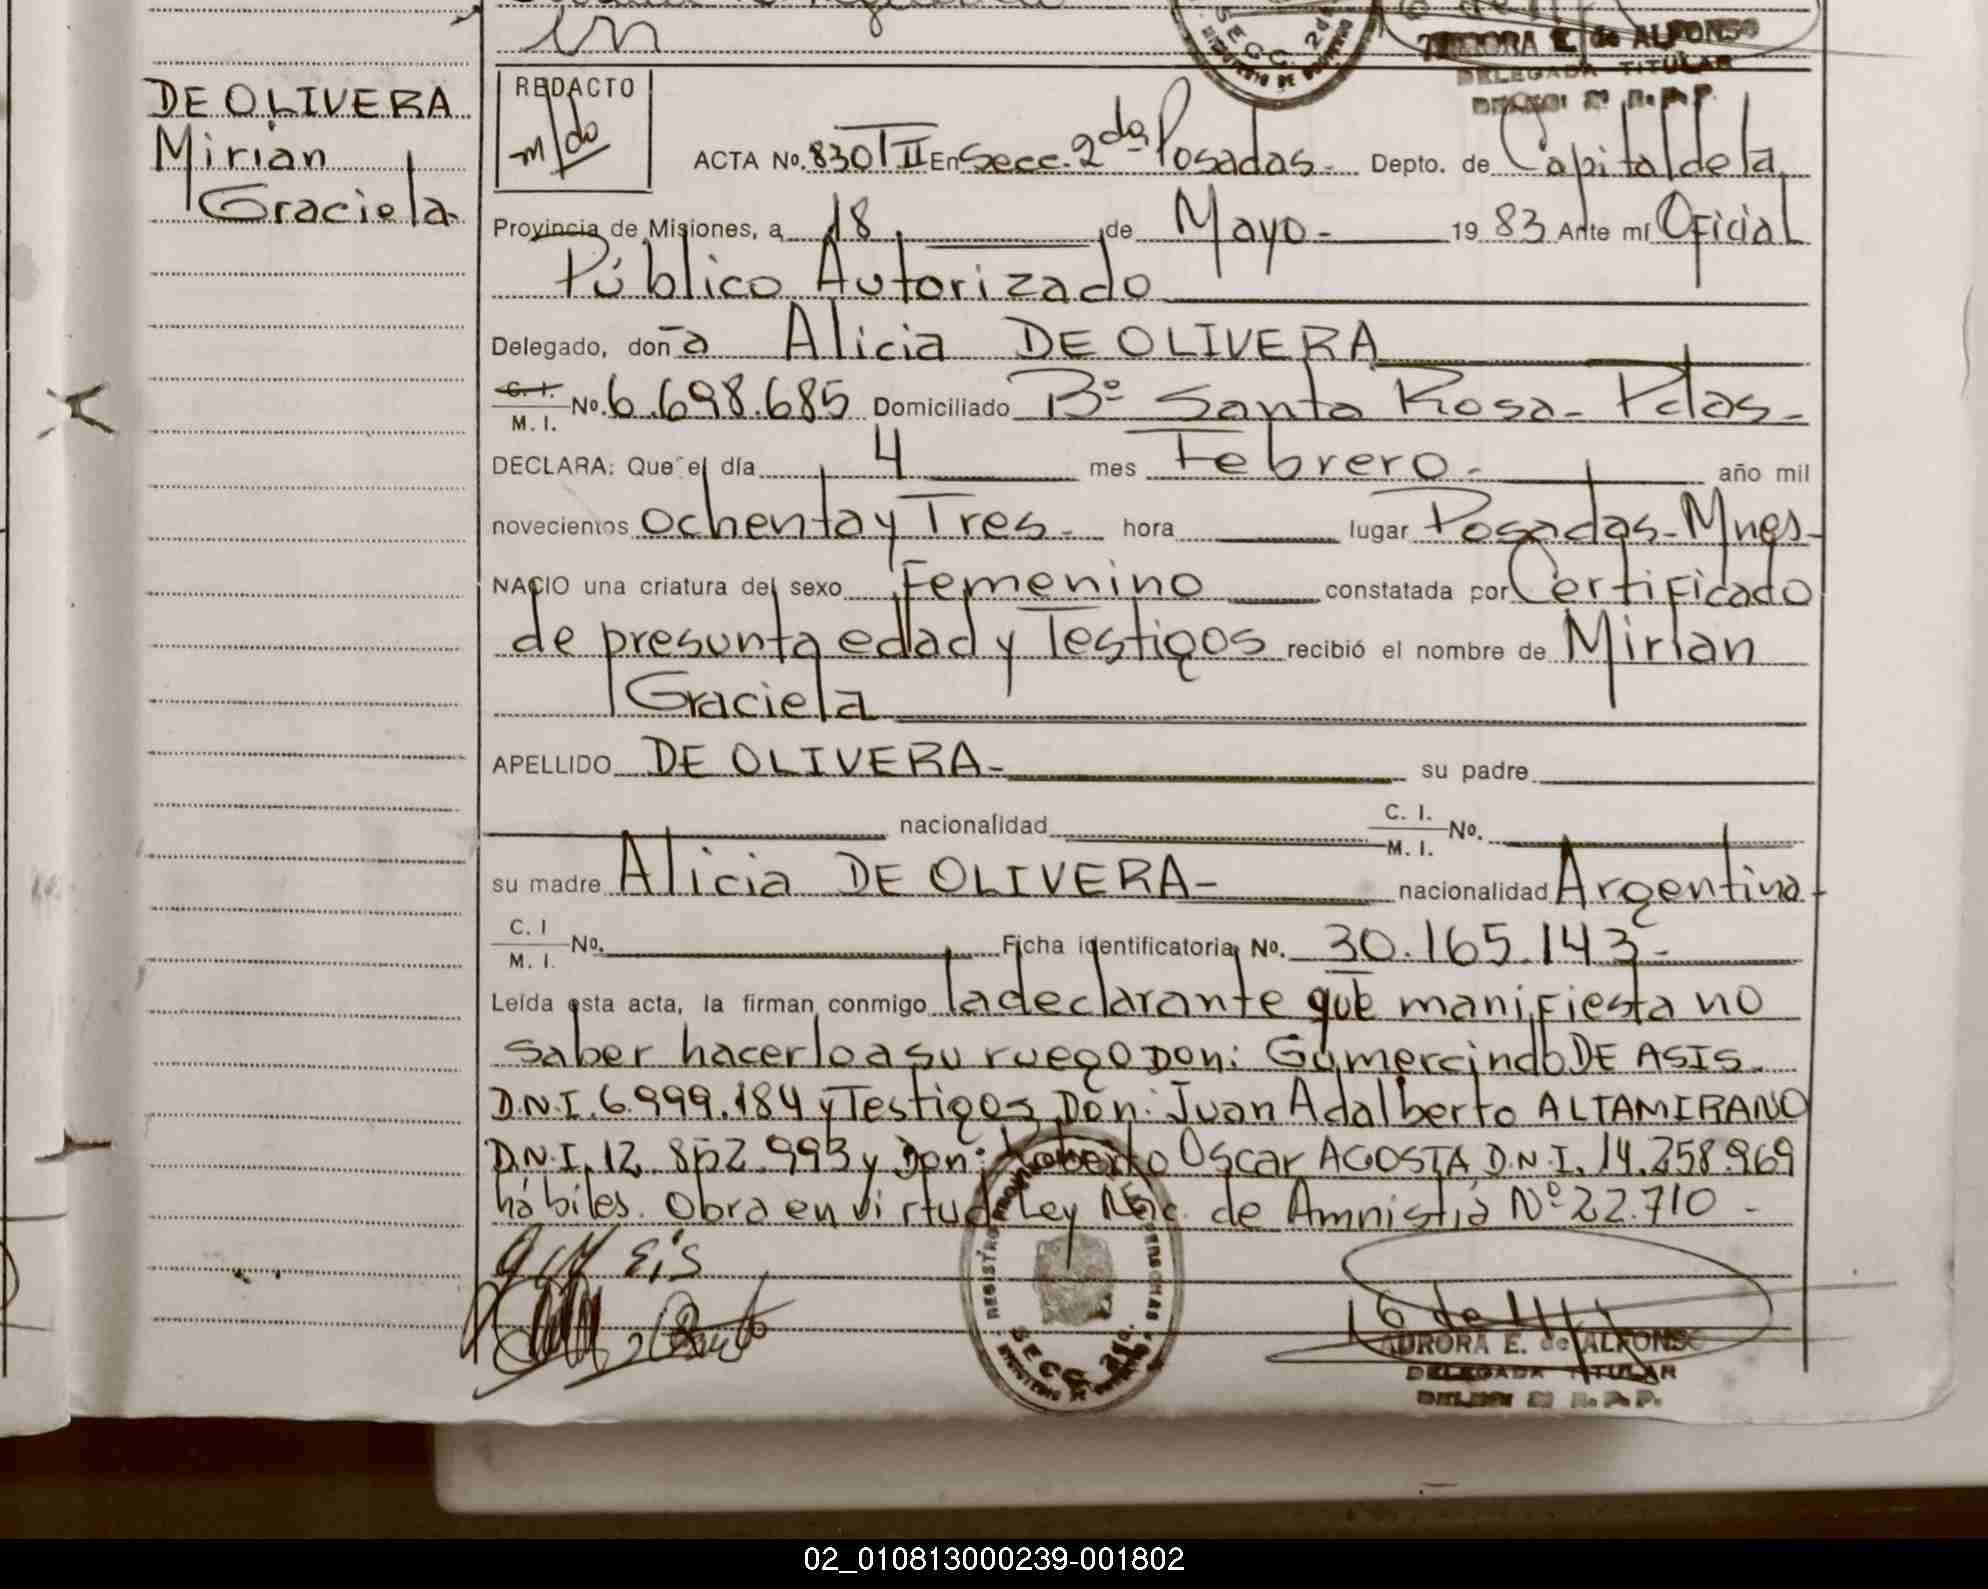 in
SECC. 2da
AURORA E. de ALFONSO
DELEGADA TITULAR
DE OLIVERA
Mirian
Graciela
REDACTO
ACTA No. 830 TII En Secc. 2da Posadas- Depto. de Capital de la
Provincia de Misiones, a 18 de Mayo- 19 83 Ante mí Oficial
Público Autorizado
Delegado, don a Alicia DE OLIVERA
C. I.
M. I. No. 6.698.685 Domiciliado Bº Santa Rosa- Pdas-
DECLARA: Que el día 4 mes Febrero- año mil
novecientos ochenta y Tres- hora lugar Posadas-Mnes-
NACIO una criatura del sexo Femenino constatada por Certificado
de presunta edad y Testigos recibió el nombre de Mirian
Graciela
APELLIDO DE OLIVERA- su padre
nacionalidad C. I.
M. I. No.
su madre Alicia DE OLIVERA- nacionalidad Argentina-
C. I
M. I. No. Ficha identificatoria No. 30.165.143-
Leída esta acta, la firman conmigo la declarante que manifiesta no
saber hacerlo a su ruego Don: Gumercindo DE ASIS.
D.N.I. 6.999.184 y Testigos Don: Juan Adalberto ALTAMIRANO
D.N.I. 12.852.993 y Don: Roberto Oscar ACOSTA D.N.I. 14.258.969
hábiles. Obra en virtud Ley Nac. de Amnistía Nº 22.710-
REGISTRO PROVINCIAL DE LAS PERSONAS
SECC. 2da.
AURORA E. de ALFONSO
DELEGADA TITULAR
02_010813000239-001802